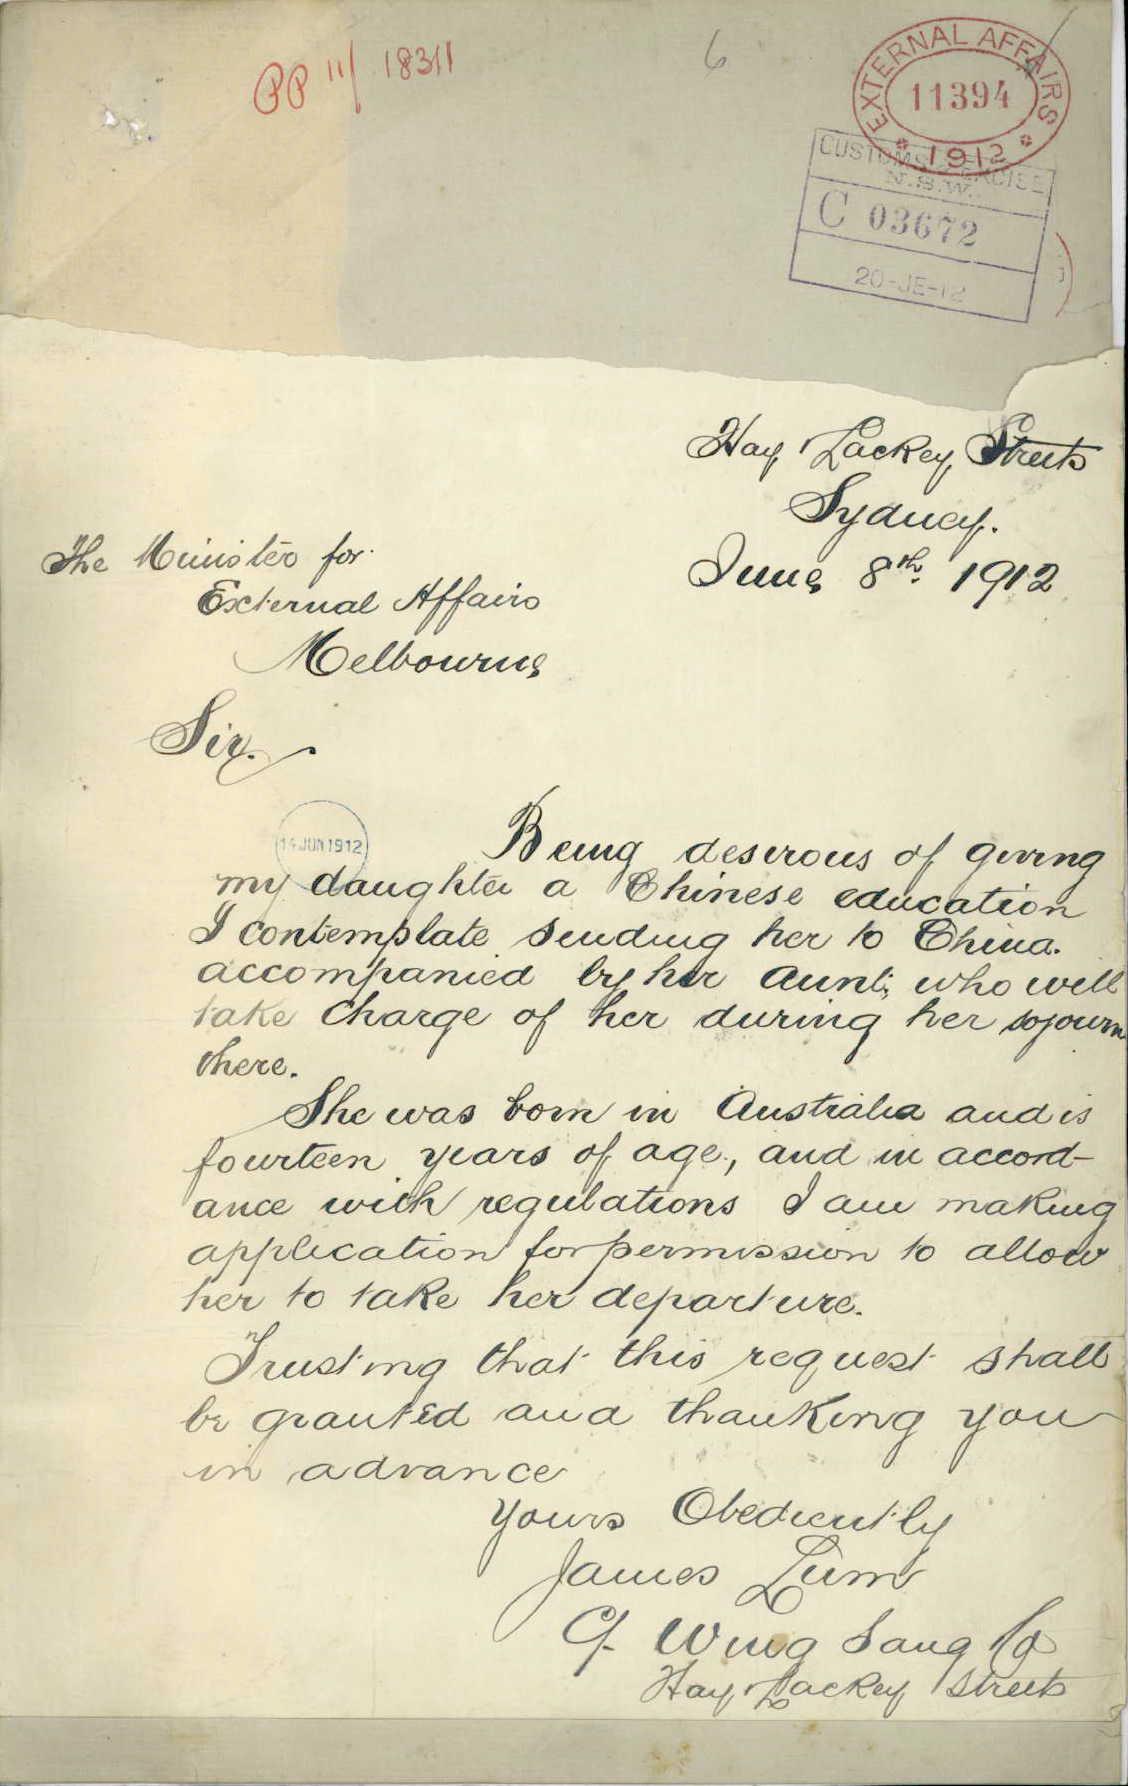 PP 11/ 18311
6
EXTERNAL AFFAIRS
11394
1912
CUSTOMS & EXCISE
N.S.W.
C 03672
20-JE-12
Hay, Lackey Streets
Sydney.
June 8th. 1912
The Minister for
External Affairs
Melbourne
Sir.
14 JUN 1912
Being desirous of giving
my daughter a Chinese education
I contemplate sending her to China.
accompanied by her Aunt, who will
take Charge of her during her sojourn
there.
She was born in Australia and is
fourteen years of age, and in accord-
ance with regulations I am making
application for permission to allow
her to take her departure.
Trusting that this request shall
be granted and thanking you
in advance
Yours Obediently
James Lum
C/- Wing Sang Co
Hay, Lackey Streets